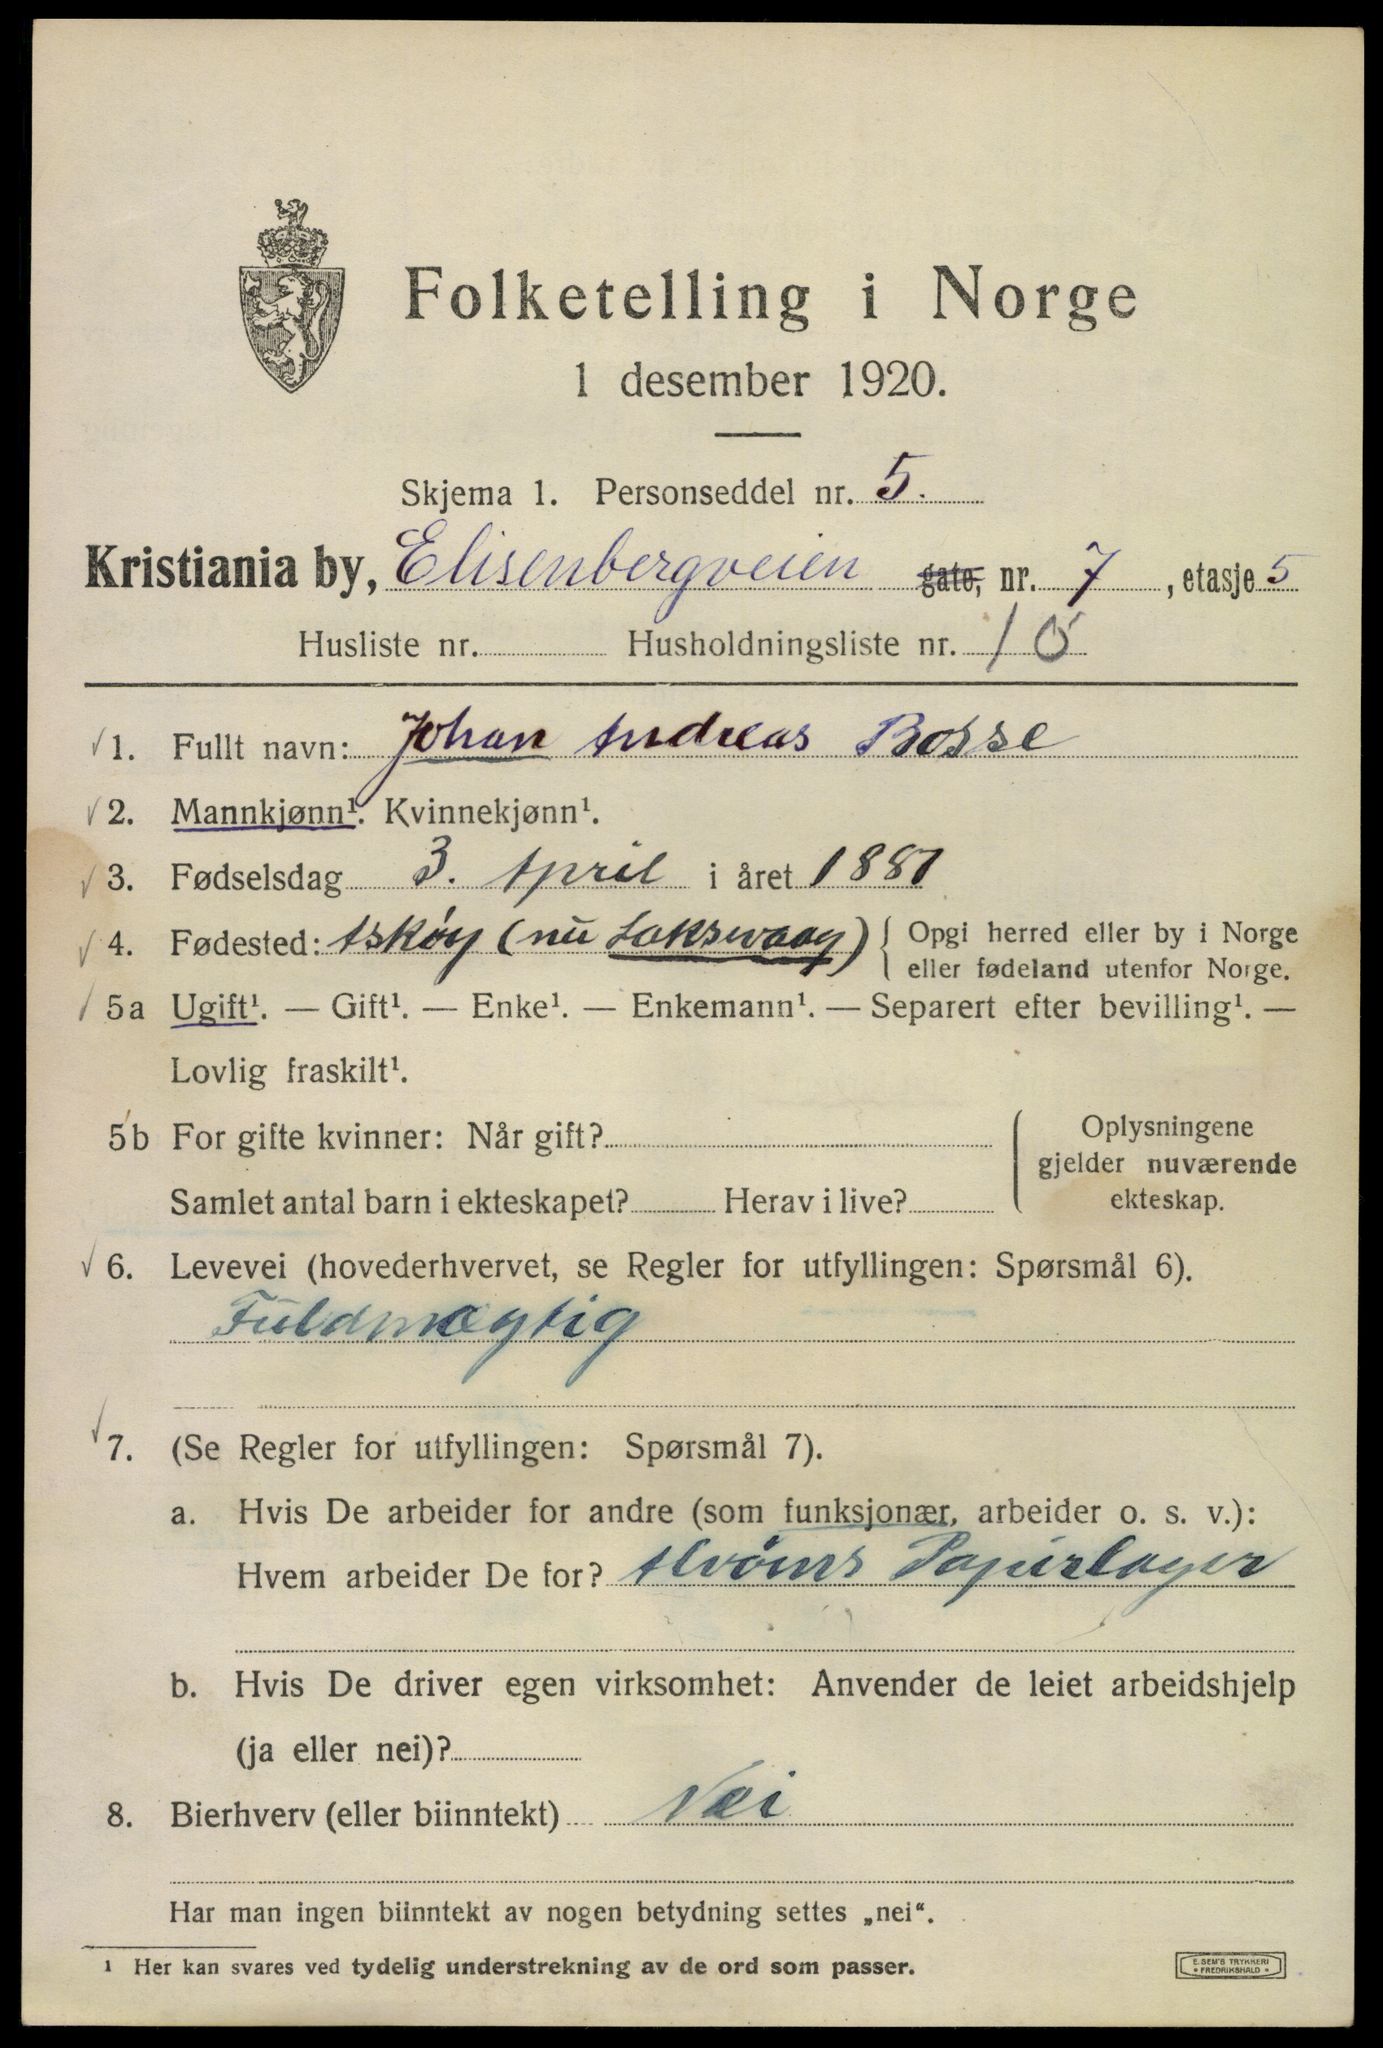 Folketelling i Norge
1 desember 1920.
Skjema 1. Personseddel nr. 5.
Kristiania by, Elisenbergveien gate, nr. 7, etasje 5
Husliste nr. Husholdningsliste nr. 10
1. Fullt navn: Johan Andreas Bosse
2. Mannkjønn¹. Kvinnekjønn¹.
3. Fødselsdag 3. April i året 1881
4. Fødested: Askøy (nu Laksevaag) Opgi herred eller by i Norge
eller fødeland utenfor Norge.
5a Ugift¹. — Gift¹. — Enke¹. — Enkemann¹. — Separert efter bevilling¹. —
Lovlig fraskilt¹.
5b For gifte kvinner: Når gift? Oplysningene
gjelder nuværende
Samlet antal barn i ekteskapet? Herav i live? ekteskap.
6. Levevei (hovederhvervet, se Regler for utfyllingen: Spørsmål 6).
Fuldmægtig
7. (Se Regler for utfyllingen: Spørsmål 7).
a. Hvis De arbeider for andre (som funksjonær, arbeider o. s. v.):
Hvem arbeider De for? Alvøens Papirlager
b. Hvis De driver egen virksomhet: Anvender de leiet arbeidshjelp
(ja eller nei)?
8. Bierhverv (eller biinntekt) Nei
Har man ingen biinntekt av nogen betydning settes „nei“.
¹ Her kan svares ved tydelig understrekning av de ord som passer.
E. SEM'S TRYKKERI
• FREDRIKSHALD •